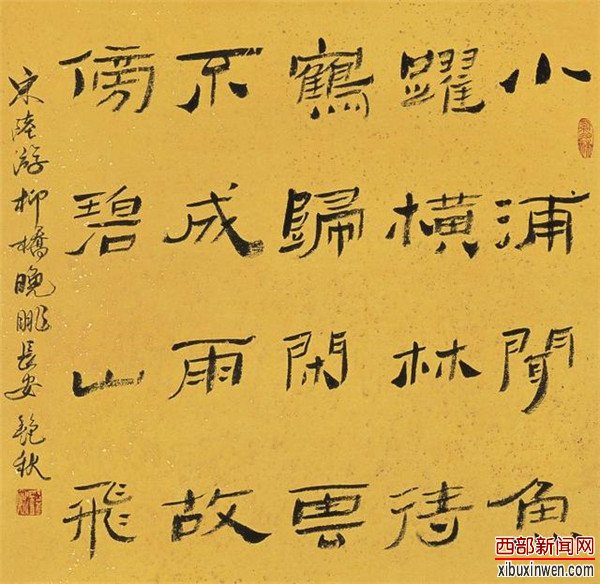 小浦聞魚
躍橫林待
鶴歸閑雲
不成雨故
傍碧山飛
宋陸游柳橋晚眺長安 秋
西部新闻网
xibuxinwen.com